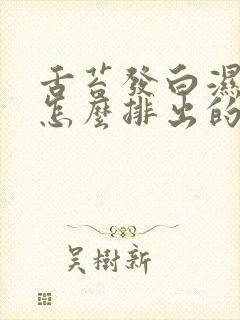 舌苔發白濕
怎麼排出的
吳樹新